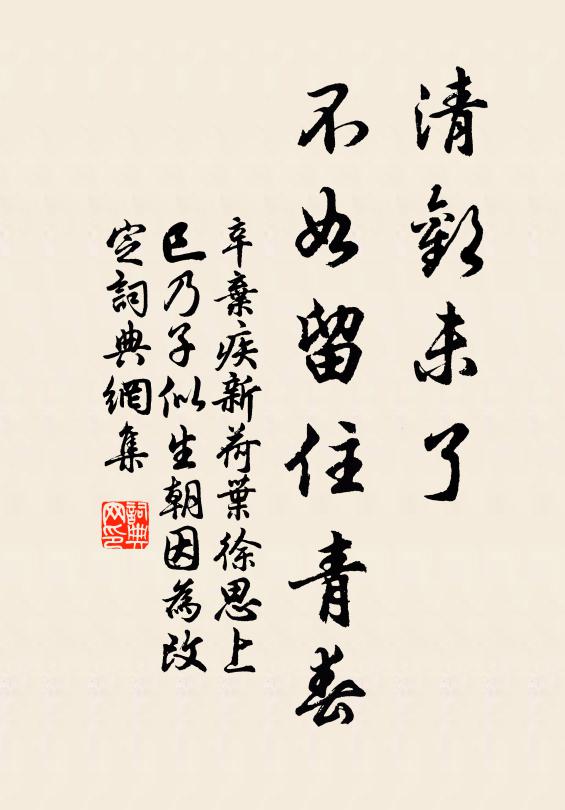 清歡未了
不如留住青春
辛棄疾新荷葉徐思上
巳乃子似生朝因為改
定詞典網集
詞典
网印